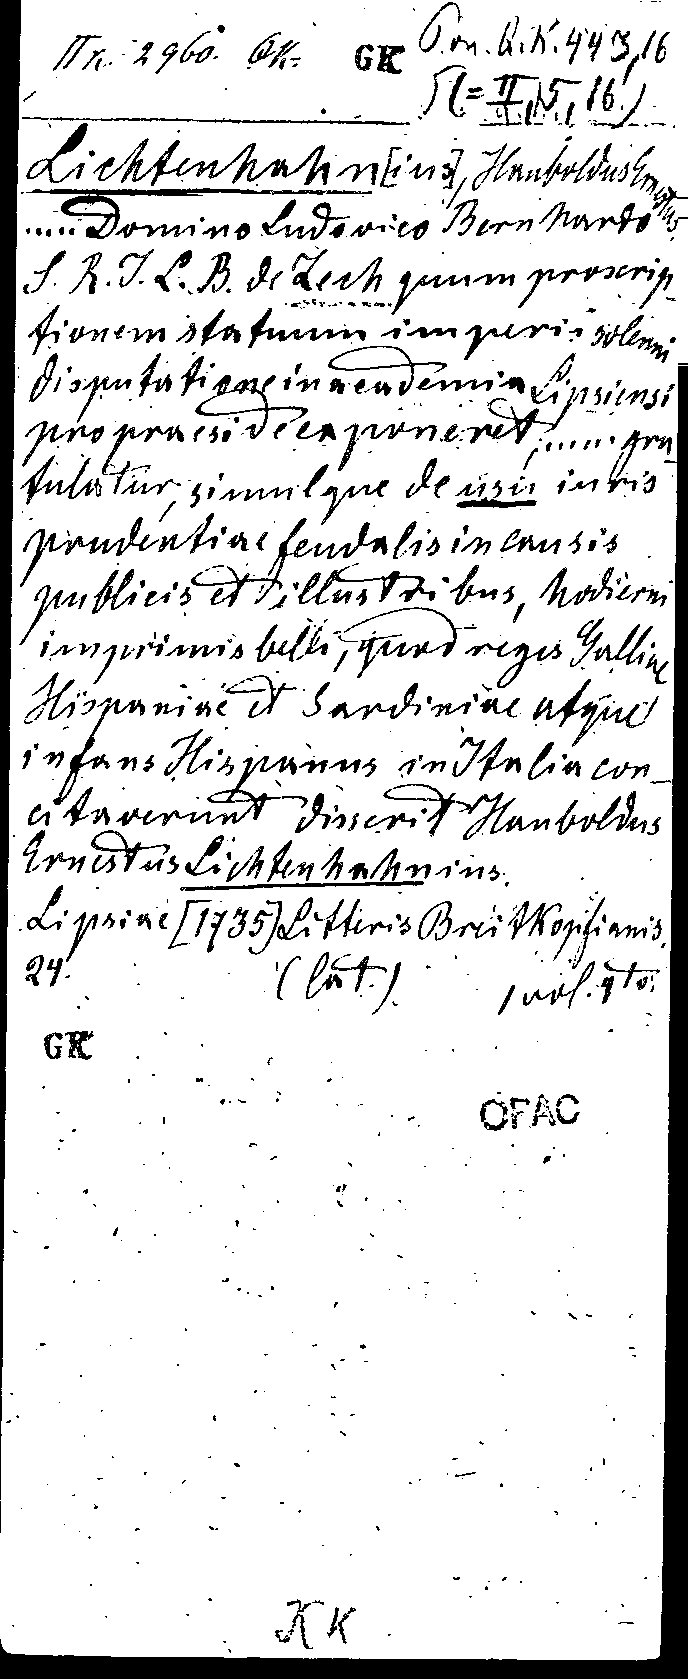 Nr. 2960. QK. GK Pon. Q.K. 443,16
(= II, 15, 16.)
Lichtenhahn[ius], Hauboldus Ernestus.
..... Domino Ludovico Bernhardo
S. R. I. L. B. de Zech quum proscrip-
tionem statuum imperii solemni
disputatione in academia Lipsiensi
pro praeside exponeret, ..... gra-
tulatur, simulque de usu iuris
prudentiae feudalis in causis
publicis et illustribus, hodierni
imprimis belli, quod reges Galliae
Hispaniae et Sardiniae atque
infans Hispanus in Italia con-
citaverunt disserit Hauboldus
Ernestus Lichtenhahnius.
Lipsiae [1735] Litteris Breitkopfianis.
24. (lat.) 1 vol. 4to.
GK
OFAC
KK